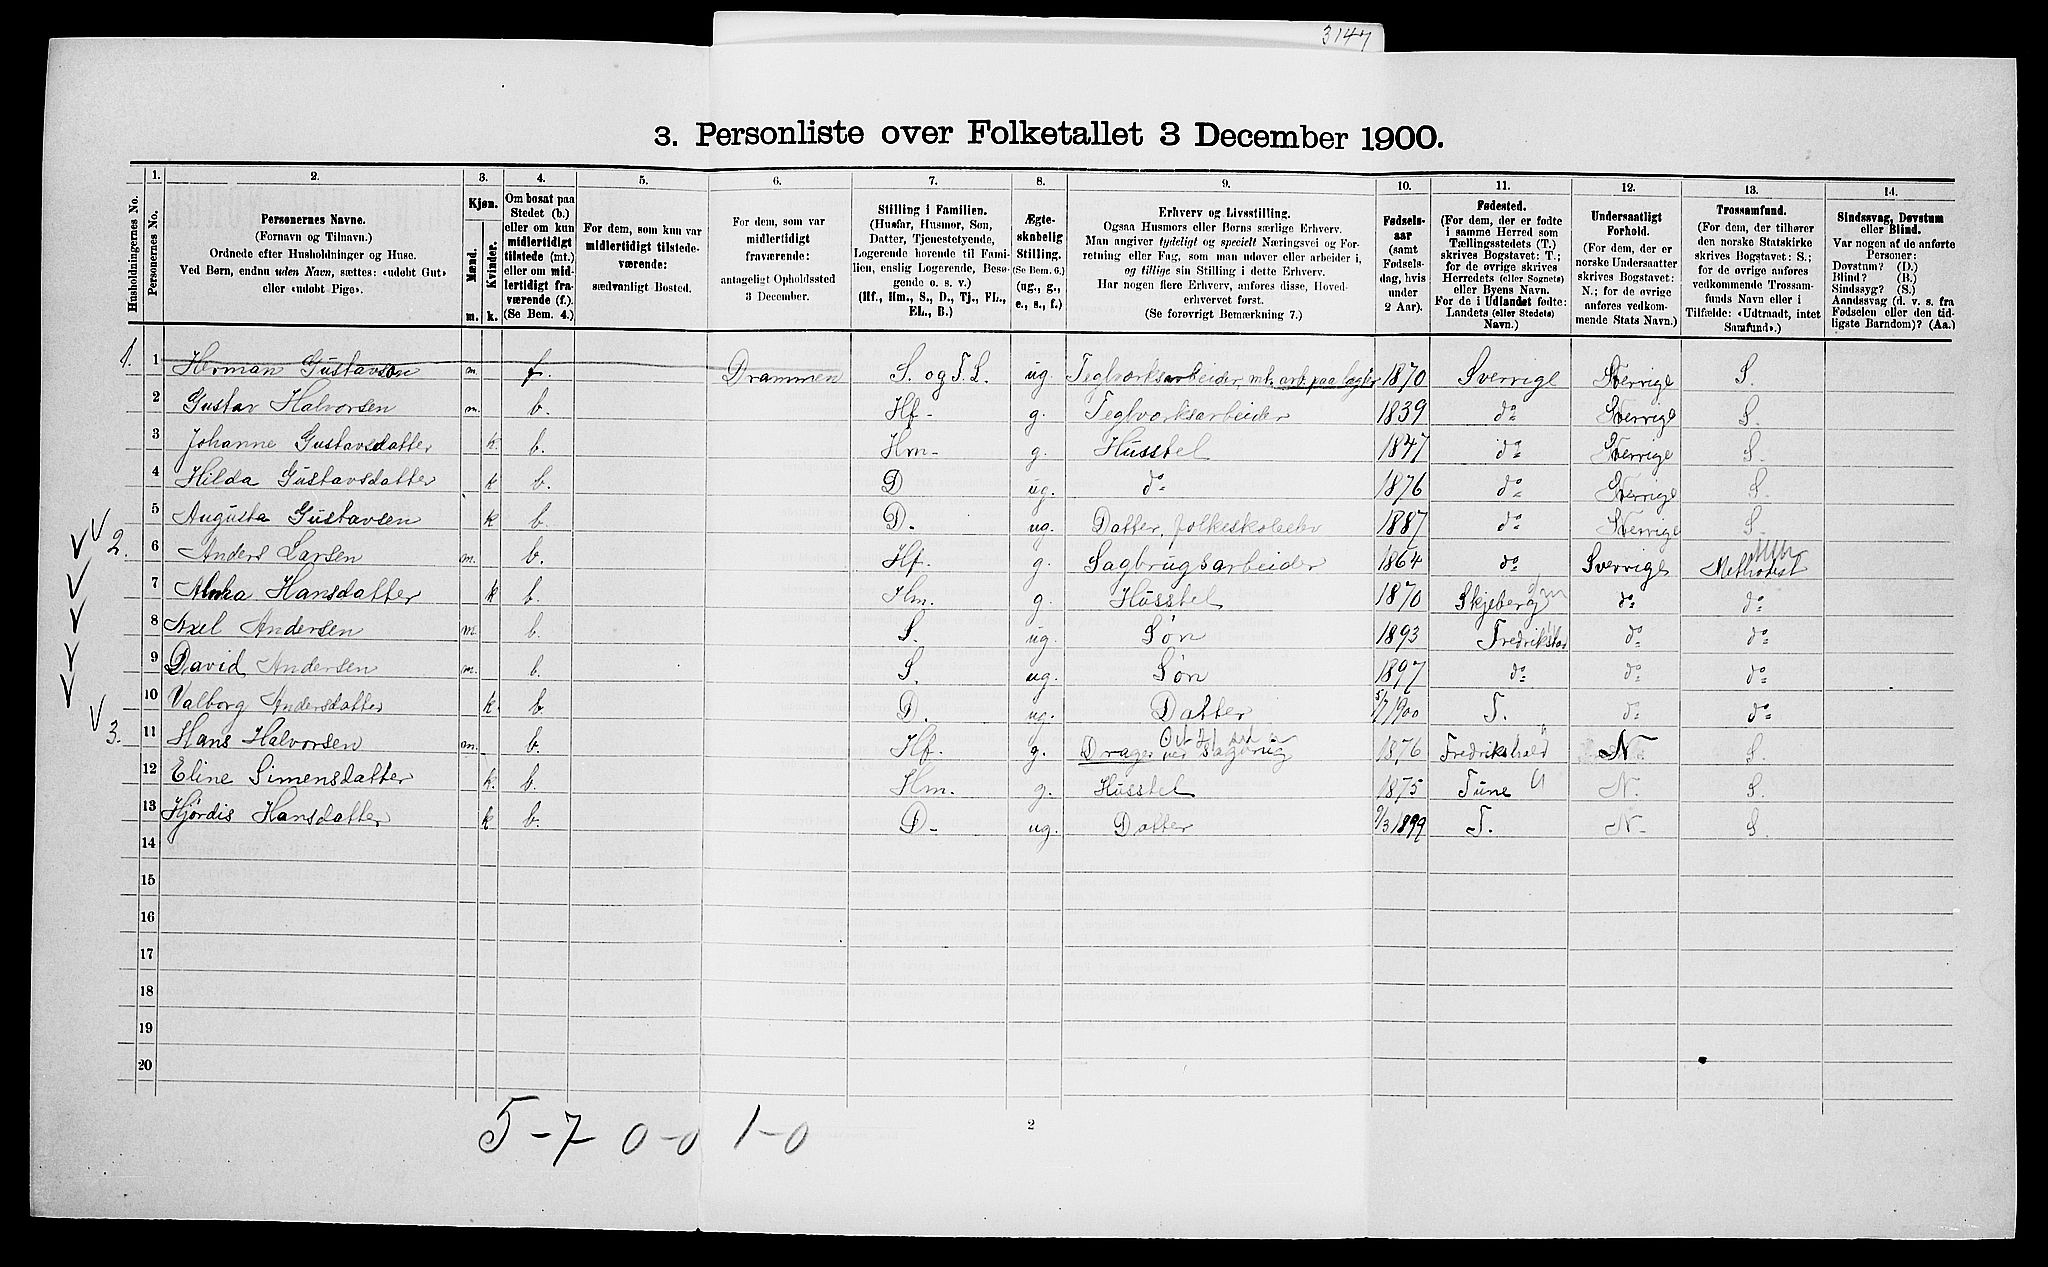 3147
3. Personliste over Folketallet 3 December 1900.
Husholdningernes No.
1.
Personernes No.
2.
Personernes Navne.
(Fornavn og Tilnavn.)
Ordnede efter Husholdninger og Huse.
Ved Børn, endnu uden Navn, sættes: «udøbt Gut»
eller «udøbt Pige».
3.
Kjøn.
Mænd.
m.
Kvinder.
k.
4.
Om bosat paa
Stedet (b.)
eller om kun
midlertidigt
tilstede (mt.)
eller om mid-
lertidigt fra-
værende (f.).
(Se Bem. 4.)
5.
For dem, som kun var
midlertidigt tilstede-
værende:
sædvanligt Bosted.
6.
For dem, som var
midlertidigt
fraværende:
antageligt Opholdssted
3 December.
7.
Stilling i Familien.
(Husfar, Husmor, Søn,
Datter, Tjenestetyende,
Logerende hørende til Fami-
lien, enslig Logerende, Besø-
gende o. s. v.)
(Hf., Hm., S., D., Tj., FL.,
EL., B.)
8.
Ægte-
skabelig
Stilling.
(Se Bem. 6.)
(ug., g.,
e., s., f.)
9.
Erhverv og Livsstilling.
Ogsaa Husmors eller Børns særlige Erhverv.
Man angiver tydeligt og specielt Næringsvei og For-
retning eller Fag, som man udøver eller arbeider i,
og tillige sin Stilling i dette Erhverv.
Har nogen flere Erhverv, anføres disse, Hoved-
erhvervet først.
(Se forøvrigt Bemærkning 7.)
10.
Fødsels-
aar
(samt
Fødsels-
dag, hvis
under
2 Aar).
11.
Fødested.
(For dem, der er fødte
i samme Herred som
Tællingsstedets (T.)
skrives Bogstavet: T.;
for de øvrige skrives
Herredets (eller Sognets)
eller Byens Navn.
For de i Udlandet fødte:
Landets (eller Stedets)
Navn.)
12.
Undersaatligt
Forhold.
(For dem, der er
norske Undersaatter
skrives Bogstavet:
N.; for de øvrige
anføres vedkom-
mende Stats Navn.)
13.
Trossamfund.
(For dem, der tilhører
den norske Statskirke
skrives Bogstavet: S.;
for de øvrige anføres
vedkommende Trossam-
funds Navn eller i
Tilfælde: «Udtraadt, intet
Samfund».)
14.
Sindssvag, Døvstum
eller Blind.
Var nogen af de anførte
Personer:
Døvstum? (D.)
Blind? (B.)
Sindssyg? (S.)
Aandssvag (d. v. s. fra
Fødselen eller den tid-
ligste Barndom)? (Aa.)
1. 1 Herman Gustavson m. f. Drammen S. og F.L. ug. Teglværksarbeider, mt. arb. paa 1870 Sverrige Sverrige S.
2 Gustav Halvorsen m. b. Hf. g. Teglværksarbeider 1839 do Sverrige S.
3 Johanne Gustavsdatter k. b. Hm. g. Husstel 1847 do Sverrige S.
4 Hilda Gustavsdatter k b. D ug. do 1876 do Sverrige S.
5 Augusta Gustavsen k b. D. ug. Datter, 1887 do Sverrige S.
2. 6 Anders Larsen m. b. Hf. g. Sagbrugsarbeider 1864 do Sverrige Methodist
7 Hansdatter k b. Hm. g. Husstel 1870 Skjeberg do do
8 Axel Andersen m. b. S. ug. Søn 1893 Fredrikstad do do
9 David Andersen m. b. S. ug. Søn 1897 do do do
10 Valborg Andersdatter k. b. D. ug. Datter 5/7 1900 T. do do
3. 11 Hans Halvorsen m. b. Hf. g. Drager ved Sagbrug 1876 Fredrikshald N S.
12 Eline Simensdatter k. b. Hm. g. Husstel 1875 Tune N. S.
13 Hjørdis Hansdatter k b. D. ug. Datter 9/3 1899 T. N. S.
14
15
16
17
18
19
20
5-7 0-0 1-0
2